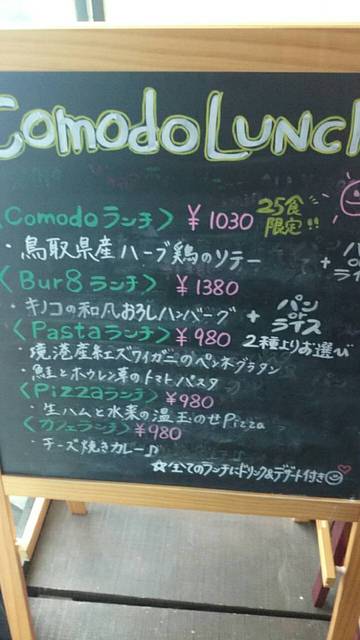 Comodo LUNCH
〈Comodoランチ〉 ¥1030 25食限定!!
・鳥取県産ハーブ鶏のソテー +
〈Bur8ランチ〉 ¥1380
・キノコの和風おろしハンバーグ + パン or ライス
〈Pastaランチ〉 ¥980 2種よりお選び
境港産紅ズワイガニのペンネグラタン
・鮭とホウレン草のトマトパスタ
〈Pizzaランチ〉 ¥980
・生ハムと水菜の温玉のせPizza
〈カフェランチ〉 ¥980
・チーズ焼きカレー♪
☆全てのランチにドリンク&デザート付き